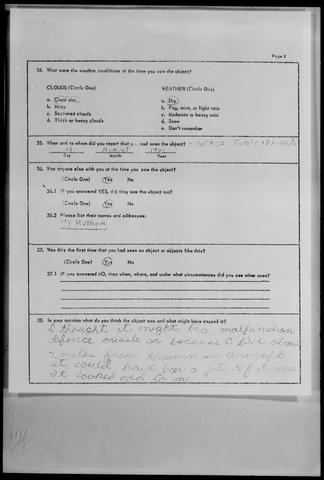 Page 7
34. What were the weather conditions at the time you saw the object?
CLOUDS (Circle One) WEATHER (Circle One)
a. Clear sky a. Dry
b. Hazy b. Fog, mist, or light rain
c. Scattered clouds c. Moderate or heavy rain
d. Thick or heavy clouds d. Snow
e. Don't remember
35. When and to whom did you report that you had seen the object?
August
Day Month Year
36. Was anyone else with you at the time you saw the object?
(Circle One) Yes No
36.1 IF you answered YES, did they see the object too?
(Circle One) Yes No
36.2 Please list their names and addresses:
My Mother
37. Was this the first time that you had seen an object or objects like this?
(Circle One) Yes No
37.1 IF you answered NO, then when, where, and under what circumstances did you see other ones?
38. In your opinion what do you think the object was and what might have caused it?
I thought it might be a malfunction
defence missle or because I live about
miles from Aircraft
it could have been a jet. If it was
it looked odd to me